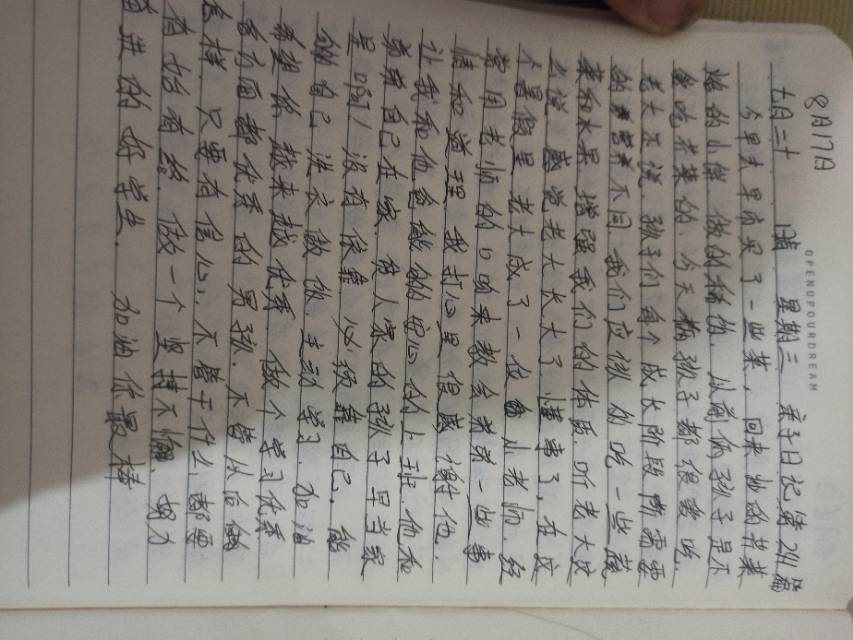 8月17日
OPENUPOURDREAM
七月二十 晴 星期三 亲子日记第241篇
今早大早市买了一些菜，回来炒的芹菜
她的小鲜做的稀的 从前你孩子是不
爱吃芹菜的 今天 孩子都很爱吃.
老大还说 孩子们每个成长阶段所需要
的营养不同 我们应该多吃一些蔬
菜和水果 增强我们的体质. 听老大这
么说 感觉老大长大了 懂事了, 在这
个暑假里 老大成了一位小老师, 经
常用老师的口吻来教会弟弟一些事
情和道理 我打心里很感谢他.
让我和他爸能够安心的上班 他和
弟弟自己在家 穷人家的孩子早当家
是啊! 没有依靠 必须靠自己, 能
够自己洗衣做饭 主动学习. 加油
希望你越来越优秀 做个学习优秀
各方面都优秀的男孩. 不管从后做
怎样 只要有信心, 不管干什么都要
有始有终. 做一个坚持不懈 努力
前进的好学生. 加油你最棒